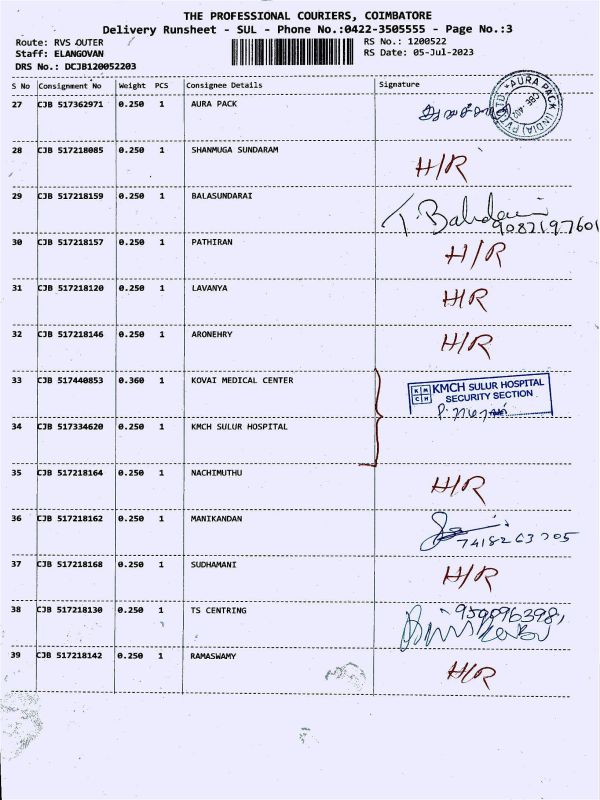 THE PROFESSIONAL COURIERS, COIMBATORE
Delivery Runsheet - SUL - Phone No.:0422-3505555 - Page No.:3
Route: RVS OUTER RS No.: 1200522
Staff: ELANGOVAN RS Date: 05-Jul-2023
DRS No.: DCJB120052203
S No Consignment No Weight PCS Consignee Details Signature
27 CJB 517362971 0.250 1 AURA PACK
AURA PACK (INDIA) (PVT) LTD
CBE-402
28 CJB 517218085 0.250 1 SHANMUGA SUNDARAM H/R
29 CJB 517218159 0.250 1 BALASUNDARAI
9087197601
30 CJB 517218157 0.250 1 PATHIRAN H/R
31 CJB 517218120 0.250 1 LAVANYA H/R
32 CJB 517218146 0.250 1 ARONEHRY H/R
33 CJB 517440853 0.360 1 KOVAI MEDICAL CENTER
KMCH KMCH SULUR HOSPITAL
SECURITY SECTION
34 CJB 517334620 0.250 1 KMCH SULUR HOSPITAL
35 CJB 517218164 0.250 1 NACHIMUTHU H/R
36 CJB 517218162 0.250 1 MANIKANDAN
7418263705
37 CJB 517218168 0.250 1 SUDHAMANI H/R
38 CJB 517218130 0.250 1 TS CENTRING 950096398,
39 CJB 517218142 0.250 1 RAMASWAMY H/R